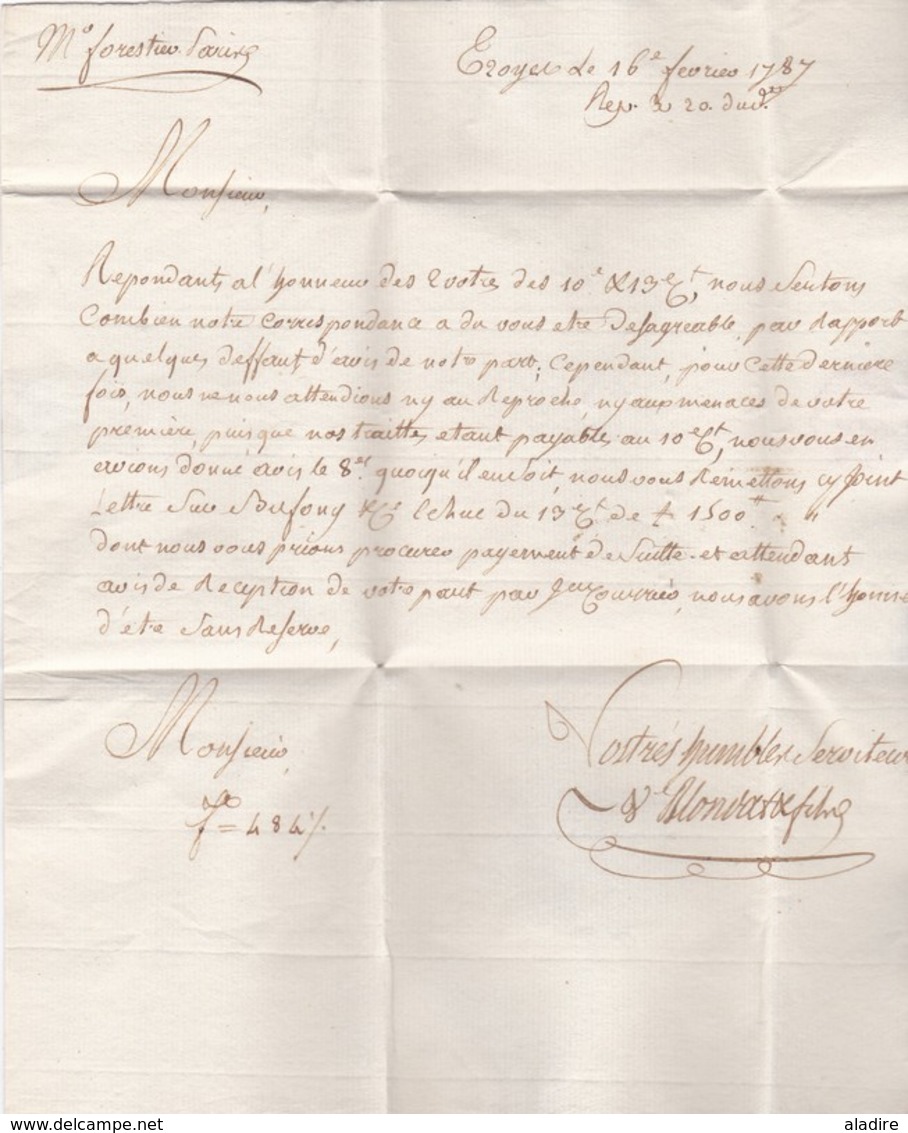 Mr forestier Paris
Troyes Le 16e fevrier 1787
Rep. Le 20. dud.
Monsieur,
Repondants a l'honneur des 2 votres des 10e & 13 Ct, nous Sentons
Combien notre Correspondance a du vous etre Desagreable, par Rapport
a quelques deffaut d'avis de notre part; Cependant, pour Cette derniere
fois, nous ne nous attendions ny au Reproche, ny aux menaces de votre
premiere, puis que nos traittes etant payables au 10 Ct, nous vous en
avions donné avis le 8e, quoiqu'il en Soit, nous vous Remettons cy Joint
Lettre Sur & Ce Echue du 13 Ct de 1500 "
dont nous vous prions procurer payement de Suitte et attendant
avis de Reception de votre part par Courrier, nous avons l'honne
d'étre Sans Reserve,
Monsieur,
Vos trés humbles Serviteur
Ve & fils
f= 484 %.
aladire